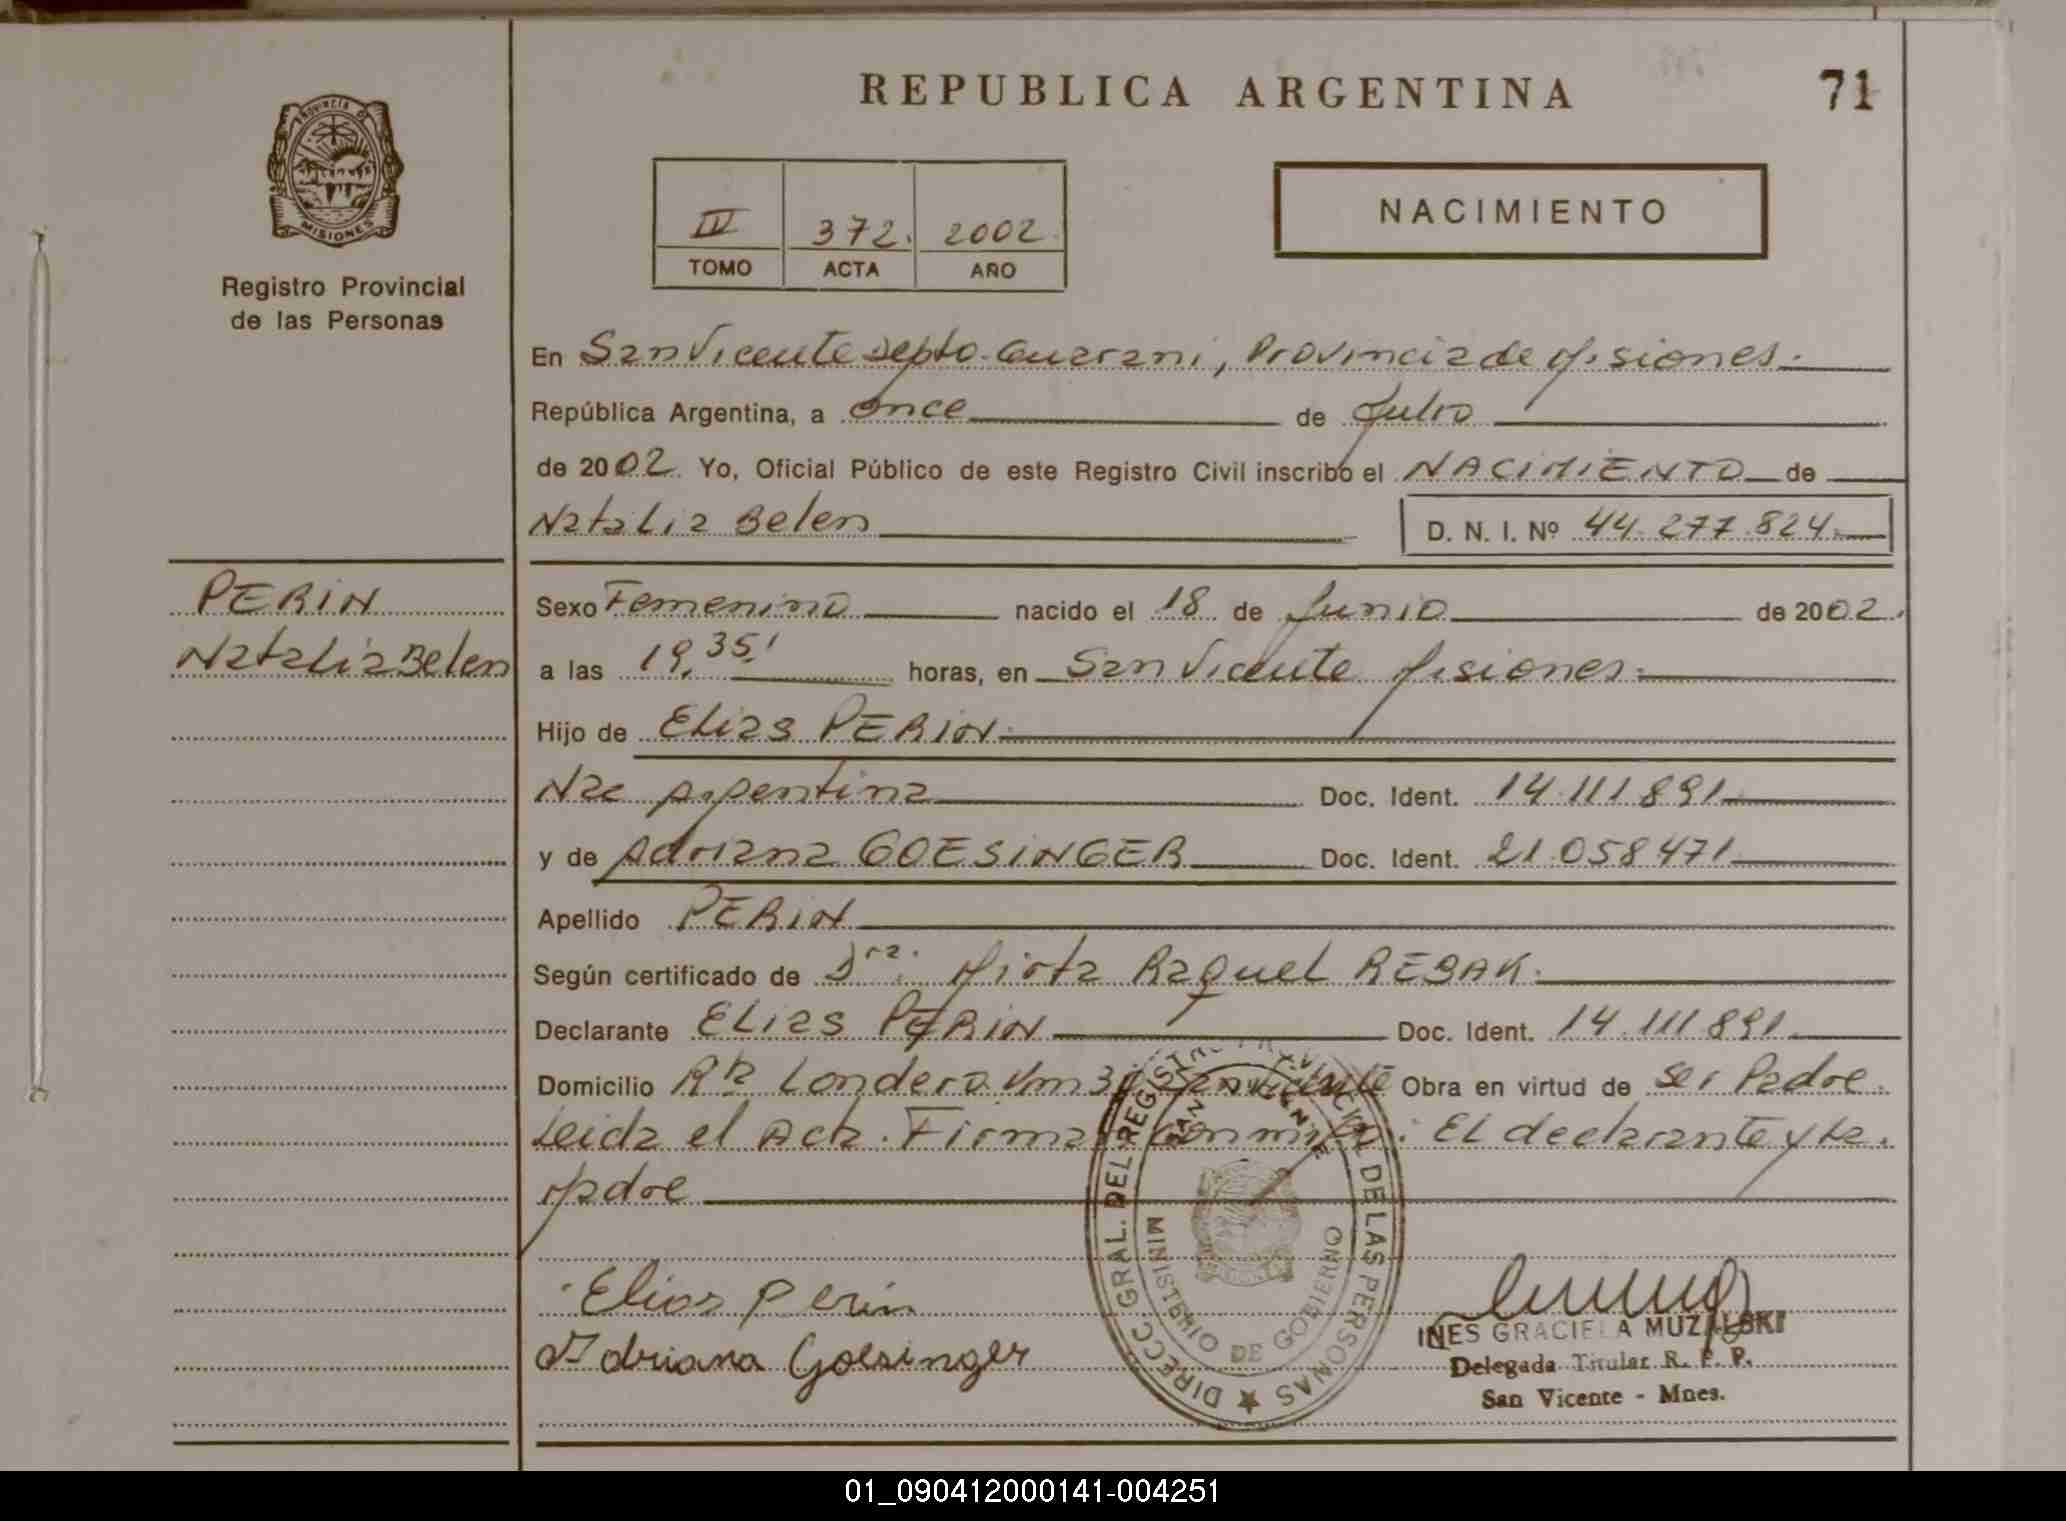 REPUBLICA ARGENTINA
71
PROVINCIA DE
MISIONES
Registro Provincial
de las Personas
IV 372. 2002.
TOMO ACTA AÑO
NACIMIENTO
En San Vicente Depto. Guarani, Provincia de Misiones.
República Argentina, a once de Julio
de 2002. Yo, Oficial Público de este Registro Civil inscribo el NACIMIENTO de
Natalia Belen D. N. I. Nº 44.277.824.
PERIN
Natalia Belen
Sexo Femenino nacido el 18 de Junio de 2002.
a las 19,35' horas, en San Vicente Misiones.
Hijo de Elias PERIN.
Nac Argentina Doc. Ident. 14.111.891
y de Adriana GOESINGER Doc. Ident. 21.058.471
Apellido PERIN
Según certificado de Dra. Mirta Raquel REBAK.
Declarante ELIAS PERIN Doc. Ident. 14.111.891.
Domicilio Londero Km San Vicente Obra en virtud de ser Padre.
Leida el Acta. Firman conmigo: El declarante y la
Madre
DIRECC GRAL. DEL REGISTRO PROVINCIAL DE LAS PERSONAS
SAN VICENTE
MINISTERIO DE GOBIERNO
Elias Perin
Adriana Goesinger
INES GRACIELA MUZALSKI
Delegada Titular R. P. P.
San Vicente - Mnes.
01_090412000141-004251